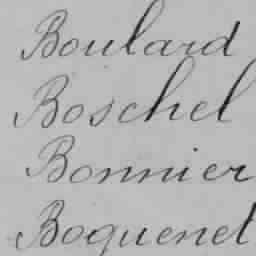 Boulard
Boschel
Bonnier
Boquenet